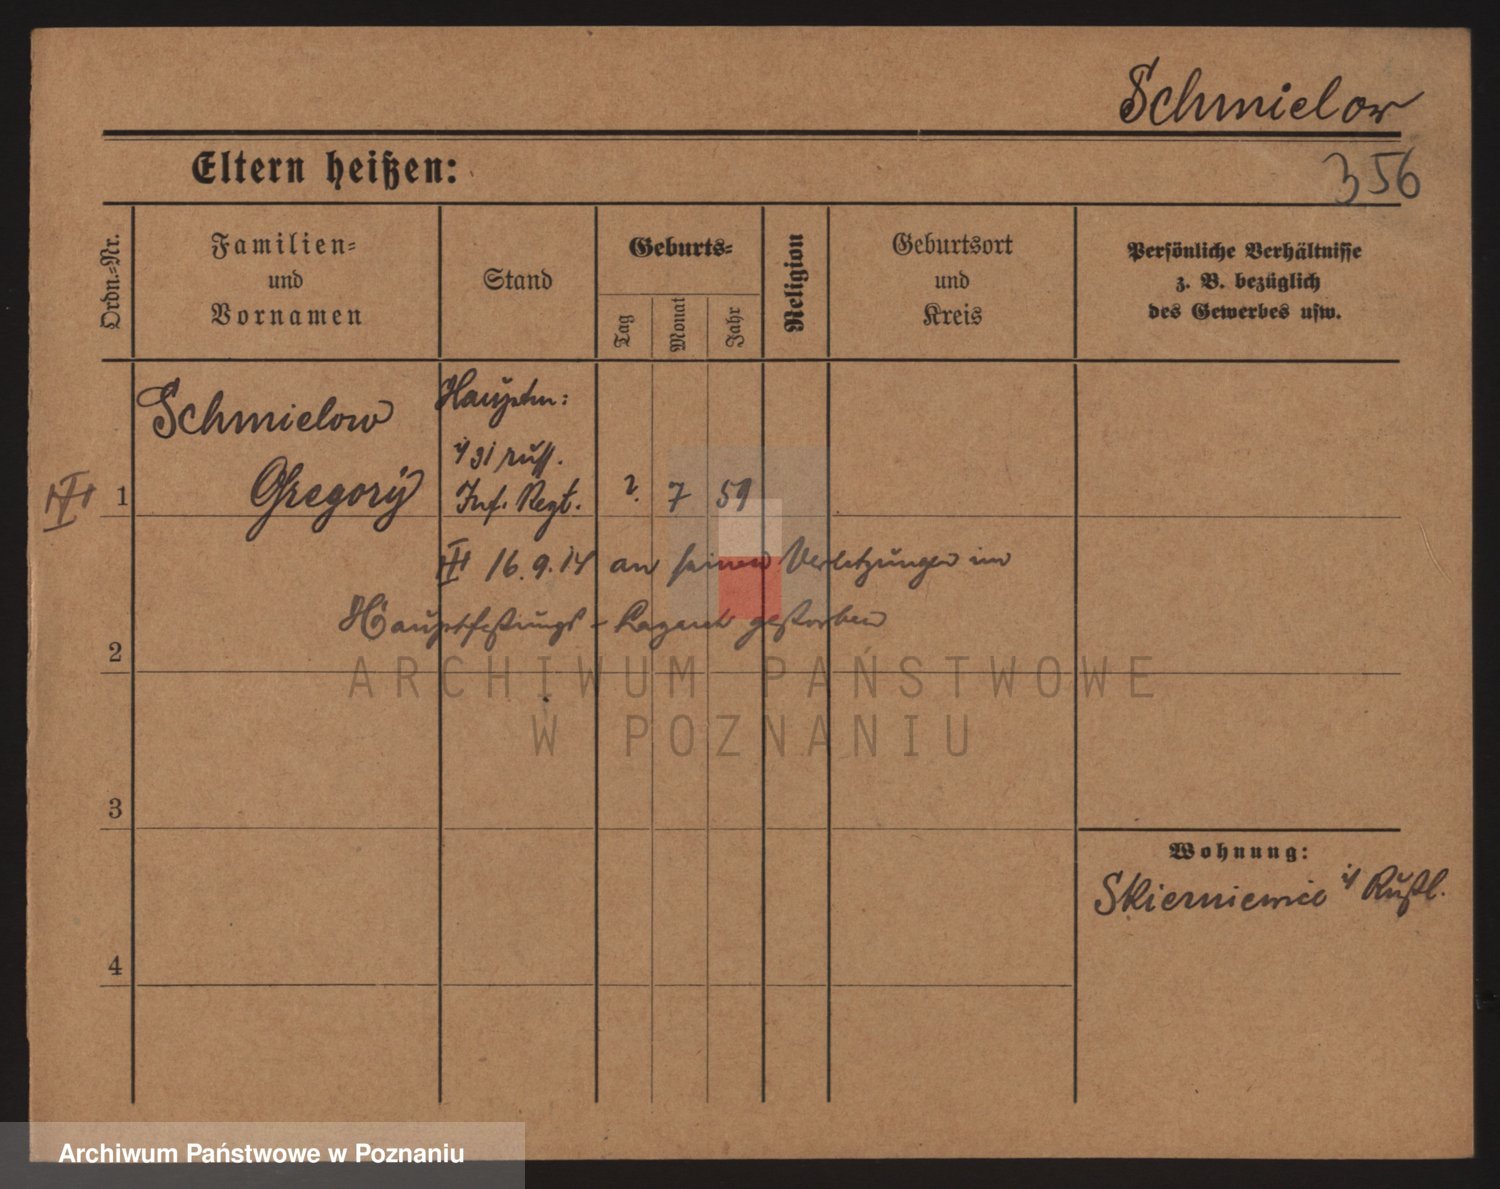 Schmielow
356
Eltern heißen:
Ordn.=Nr.
Familien=
und
Vornamen
Stand
Geburts=
Tag
Monat
Jahr
Religion
Geburtsort
und
Kreis
Persönliche Verhältnisse
z. B. bezüglich
des Gewerbes usw.
Schmielow
Gregory
Hauptm:
i/ 31 russ.
Inf. Regt.
1
?
7
59
16.9.14 an seinen Verletzungen im
Hauptfestungs-Lazarett gestorben
2
ARCHIWUM PAŃSTWOWE
W POZNANIU
3
Wohnung:
Skierniewice i/ Rußl.
4
Archiwum Państwowe w Poznaniu